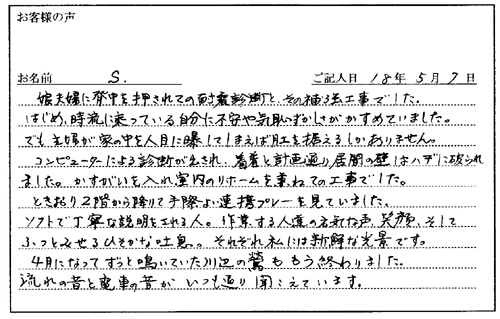 お客様の声
お名前 S. ご記入日 18年5月7日
娘夫婦に背中を押されての耐震診断と、その補強工事でした。
はじめ、時流に乗っている自分に不安や気恥ずかしさがかすめていました。
でも主婦が家の中を人目に曝してしまえば肚を据えるしかありません。
コンピューターによる診断が出され、着着と計画通り居間の壁はハデに破られ
ました。かすがいを入れ室内のリホームを兼ねての工事でした。
とき折り2階から降りて手際よい連携プレーを見ていました。
ソフトで丁寧な説明をされる人。作業する人達の元気な声、笑顔、そして
ふっとみせるひそかな吐息。それぞれ私には新鮮な光景です。
4月になってずっと鳴いていた川辺の鶯ももう終わりました。
流れの音と電車の音がいつも通り聞こえています。